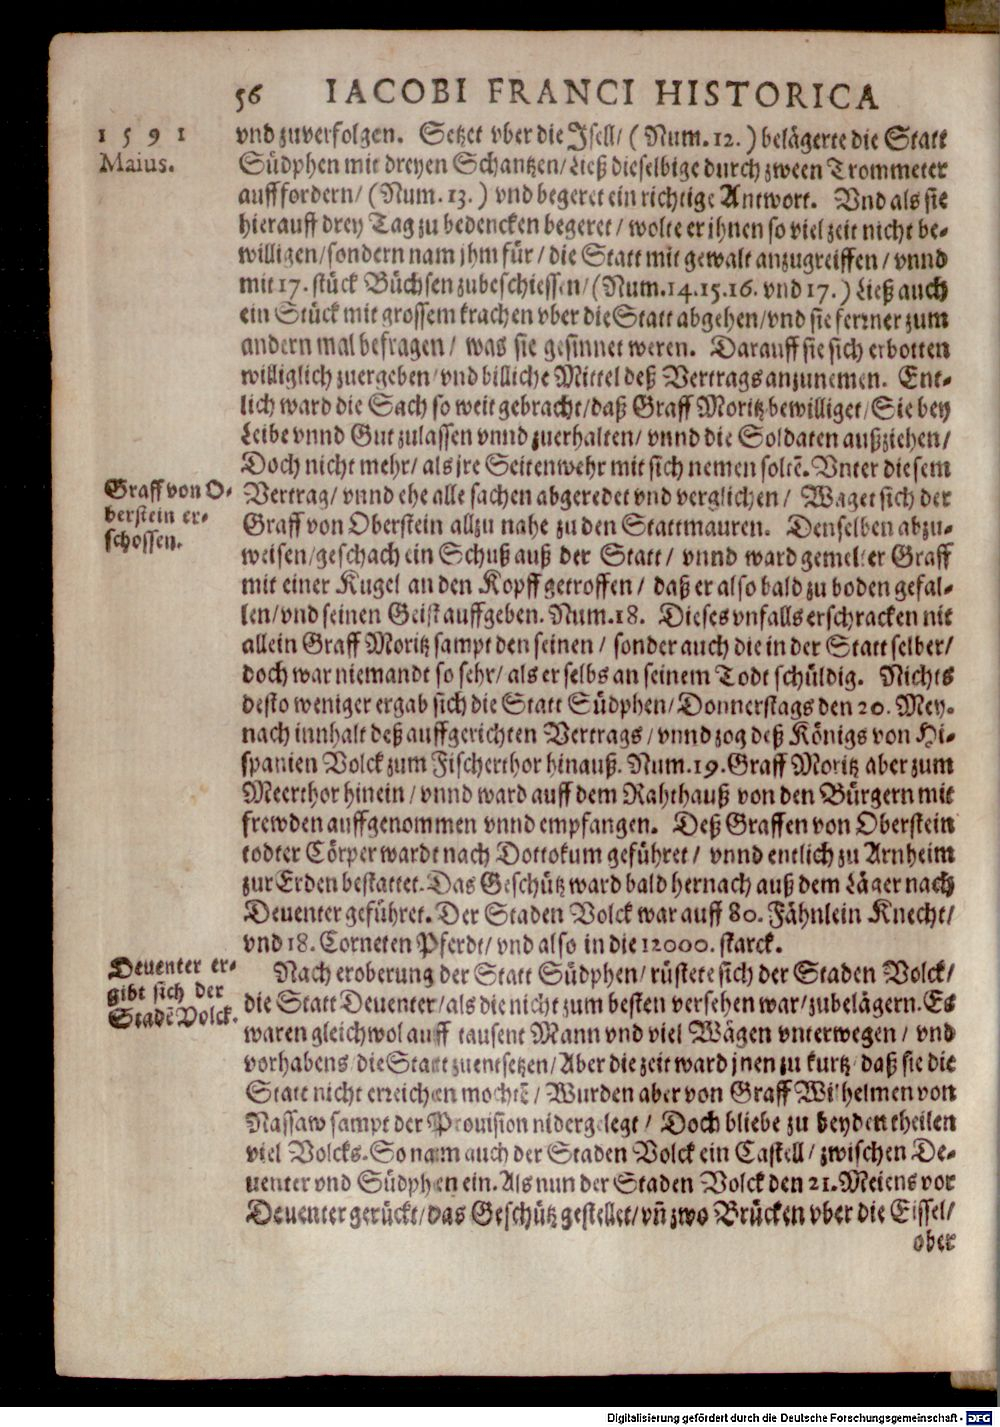 56 IACOBI FRANCI HISTORICA
1591
Maius.
vnd zuverfolgen. Setzet vber die Jsell/ (Num. 12.) belägerte die Statt
Südphen mit dreyen Schantzen/ Ließ dieselbige durch zween Trommeter
auffordern/ (Num. 13.) vnd begeret ein richtige Antwort. Vnd als sie
hierauff drey Tag zu bedencken begeret/ wolte er ihnen so viel zeit nicht be-
willigen/ sondern nam jhm für/ die Statt mit gewalt anzugreiffen/ vnnd
mit 17. stück Büchsen zubeschiessen/ (Num. 14. 15. 16. vnd 17.) Ließ auch
ein Stück mit grossem krachen vber die Statt abgehen/ vnd sie ferrner zum
andern mal befragen/ was sie gesinnet weren. Darauff sie sich erbotten
williglich zuergeben/ vnd billiche Mittel deß Vertrags anzunemen. Ent-
lich ward die Sach so weit gebracht/ daß Graff Moritz bewilliget/ Sie bey
Leibe vnnd Gut zulassen vnnd zuerhalten/ vnnd die Soldaten außziehen/
Doch nicht mehr/ als jre Seitenwehr mit sich nemen soltē. Vnter diesem
Graff von O-
berstein er-
schossen.
Vertrag/ vnnd ehe alle sachen abgeredet vnd verglichen/ Waget sich der
Graff von Oberstein allzu nahe zu den Stattmauren. Denselben abzu-
weisen/ geschach ein Schuß auß der Statt/ vnnd ward gemelter Graff
mit einer Kugel an den Kopff getroffen/ daß er also bald zu boden gefal-
len/ vnd seinen Geist auffgeben. Num. 18. Dieses vnfalls erschracken nit
allein Graff Moritz sampt den seinen/ sonder auch die in der Statt selber/
doch war niemandt so sehr/ als er selbs an seinem Todt schüldig. Nichts
desto weniger ergab sich die Statt Südphen/ Donnerstags den 20. Mey-
nach innhalt deß auffgerichten Vertrags/ vnnd zog deß Königs von Hi-
spanien Volck zum Fischerthor hinauß. Num. 19. Graff Moritz aber zum
Meerthor hinein/ vnnd ward auff dem Rahthauß von den Bürgern mit
frewden auffgenommen vnnd empfangen. Deß Graffen von Oberstein
todter Cörper wardt nach Dottokum geführet/ vnnd entlich zu Arnheim
zur Erden bestattet. Das Geschütz ward bald hernach auß dem Läger nach
Deuenter geführet. Der Staden Volck war auff 80. Fähnlein Knecht/
vnd 18. Corneten Pferdt/ vnd also in die 12000. starck.
Deuenter er-
gibt sich der
Stadē Volck.
Nach eroberung der Statt Südphen/ rüstete sich der Staden Volck/
die Statt Deuenter/ als die nicht zum besten versehen war/ zubelägern. Es
waren gleichwol auff tausent Mann vnd viel Wägen vnterwegen/ vnd
vorhabens/ die Statt zuentsetzen/ Aber die zeit ward jnen zu kurtz/ daß sie die
Statt nicht erreichen mochtē/ Wurden aber von Graff Wilhelmen von
Nassaw sampt der Prouision nidergelegt/ Doch bliebe zu beyden theilen
viel Volcks. So nam auch der Staden Volck ein Castell/ zwischen De-
uenter vnd Südphen ein. Als nun der Staden Volck den 21. Meiens vor
Deuenter gerückt/ das Geschütz gestellet/ vñ zwo Brücken vber die Eissel/
ober
Digitalisierung gefördert durch die Deutsche Forschungsgemeinschaft - DFG